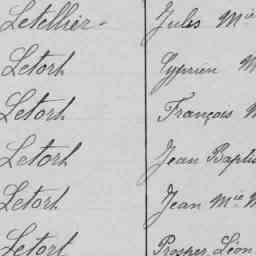 Letellier Jules Mie
Letort Cyprien M
Letort François M
Letort Jean Baptis
Letort Jean Mie M
Letort Prosper Léon